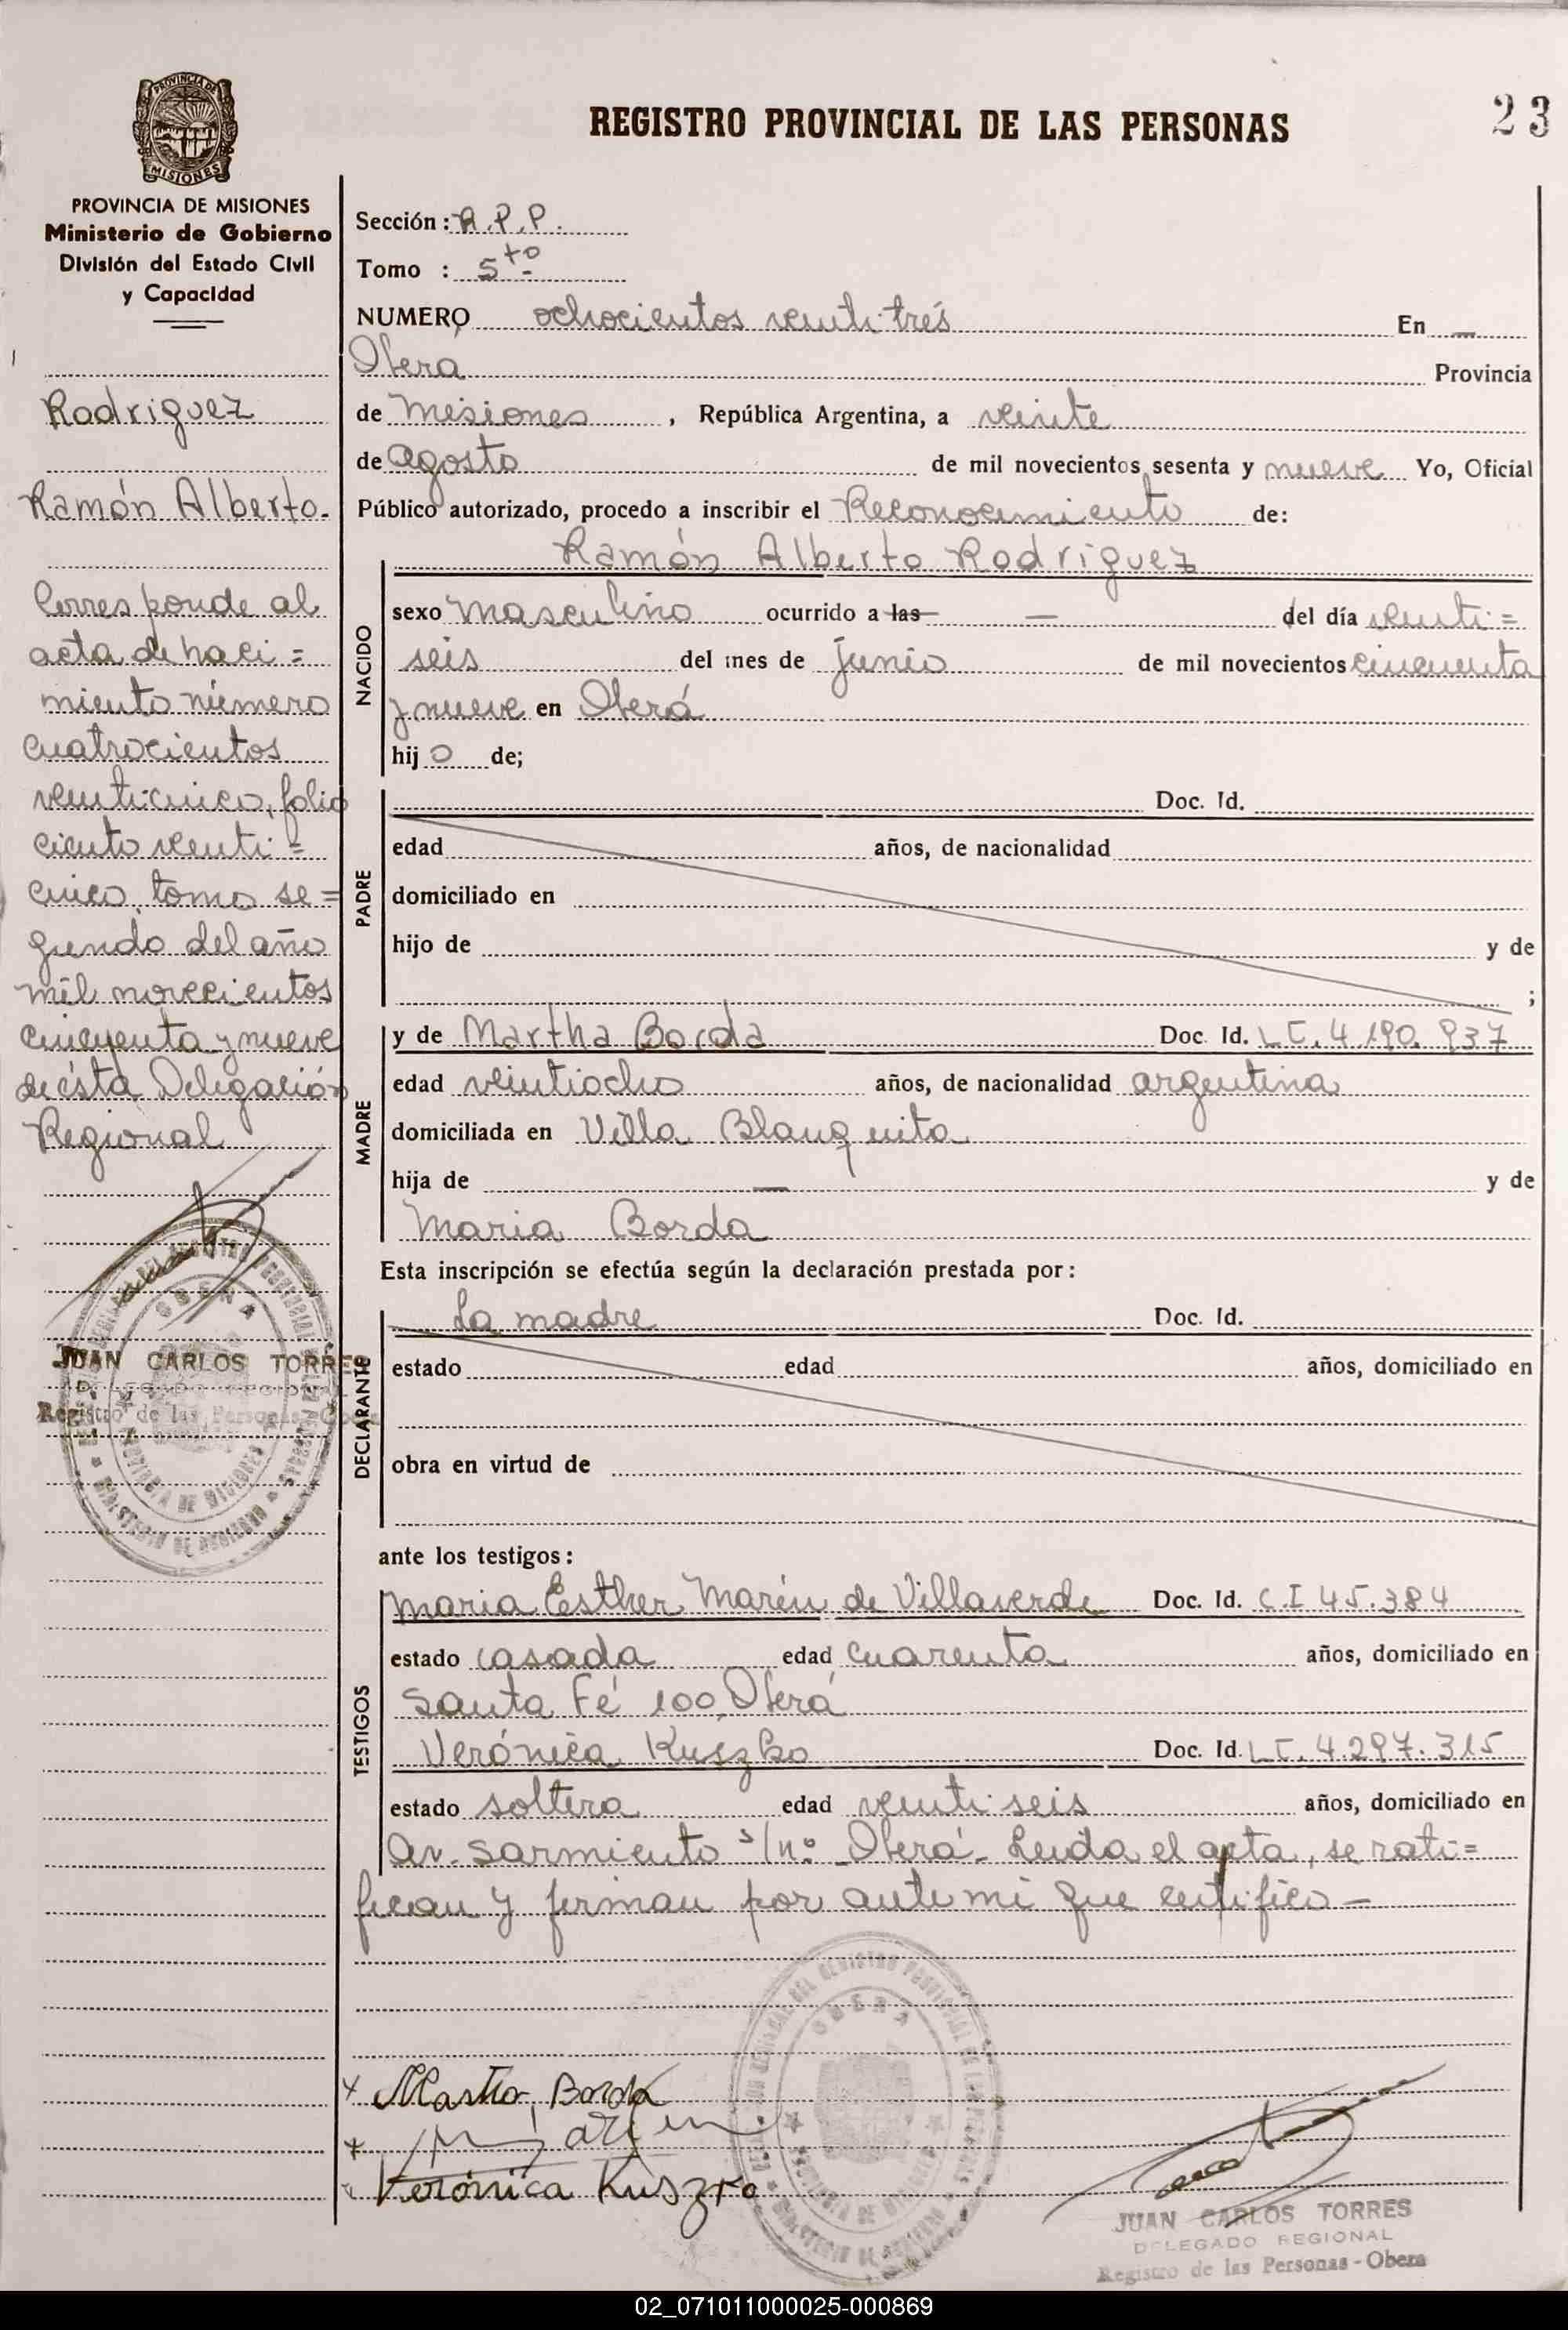 REGISTRO PROVINCIAL DE LAS PERSONAS
23
MISIONES
PROVINCIA DE MISIONES
Ministerio de Gobierno
División del Estado Civil
y Capacidad
Rodriguez
Ramón Alberto.
Corresponde al
acta de naci=
miento número
cuatrocientos
venticinco, folio
ciento venti=
cinco, tomo se=
gundo del año
mil novecientos
cincuenta y nueve
de ésta Delegación
Regional
JUAN CARLOS TORRES
DELEGADO REGIONAL
Registro de las Personas - Obera
Sección: R.P.P.
Tomo : 5to
NUMERO ochocientos venti trés En —
Oberá Provincia
de Misiones, República Argentina, a veinte
de Agosto de mil novecientos sesenta y nueve Yo, Oficial
Público autorizado, procedo a inscribir el Reconocimiento de:
Ramón Alberto Rodriguez
NACIDO
sexo masculino ocurrido a las — del día venti=
seis del mes de Junio de mil novecientos cincuenta
y nueve en Oberá
hijo de;
PADRE
Doc. Id.
edad años, de nacionalidad
domiciliado en
hijo de y de
;
MADRE
y de Martha Borda Doc. Id. LC. 4.190.937
edad veintiocho años, de nacionalidad argentina
domiciliada en Villa Blanquita
hija de — y de
Maria Borda
Esta inscripción se efectúa según la declaración prestada por:
DECLARANTE
La madre Doc. Id.
estado edad años, domiciliado en
obra en virtud de
ante los testigos:
TESTIGOS
Maria Esther Marén de Villaverde Doc. Id. C.I 45.384
estado casada edad cuarenta años, domiciliado en
Santa Fé 100, Oberá
Verónica Kuszko Doc. Id. LC. 4.297.315
estado soltera edad venti seis años, domiciliado en
Av. Sarmiento s/nº Oberá- Leida el acta, se rati=
fican y firman por ante mi que certifico —
x Martha Borda
x
Verónica Kuszko
OBERA
PROVINCIA DE MISIONES
MINISTERIO DE GOBIERNO
JUAN CARLOS TORRES
DELEGADO REGIONAL
Registro de las Personas - Obera
02_071011000025-000869